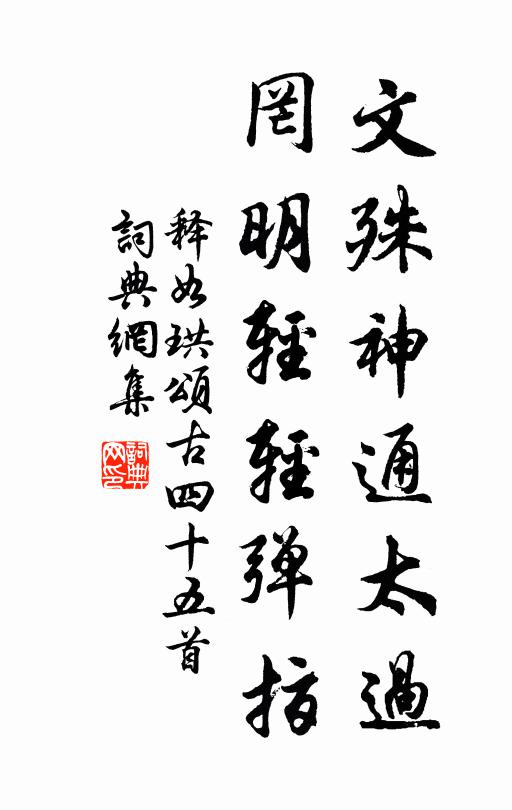 文殊神通太過
罔明輕輕弹指
释如珙頌古四十五首
詞典網集
詞典网印